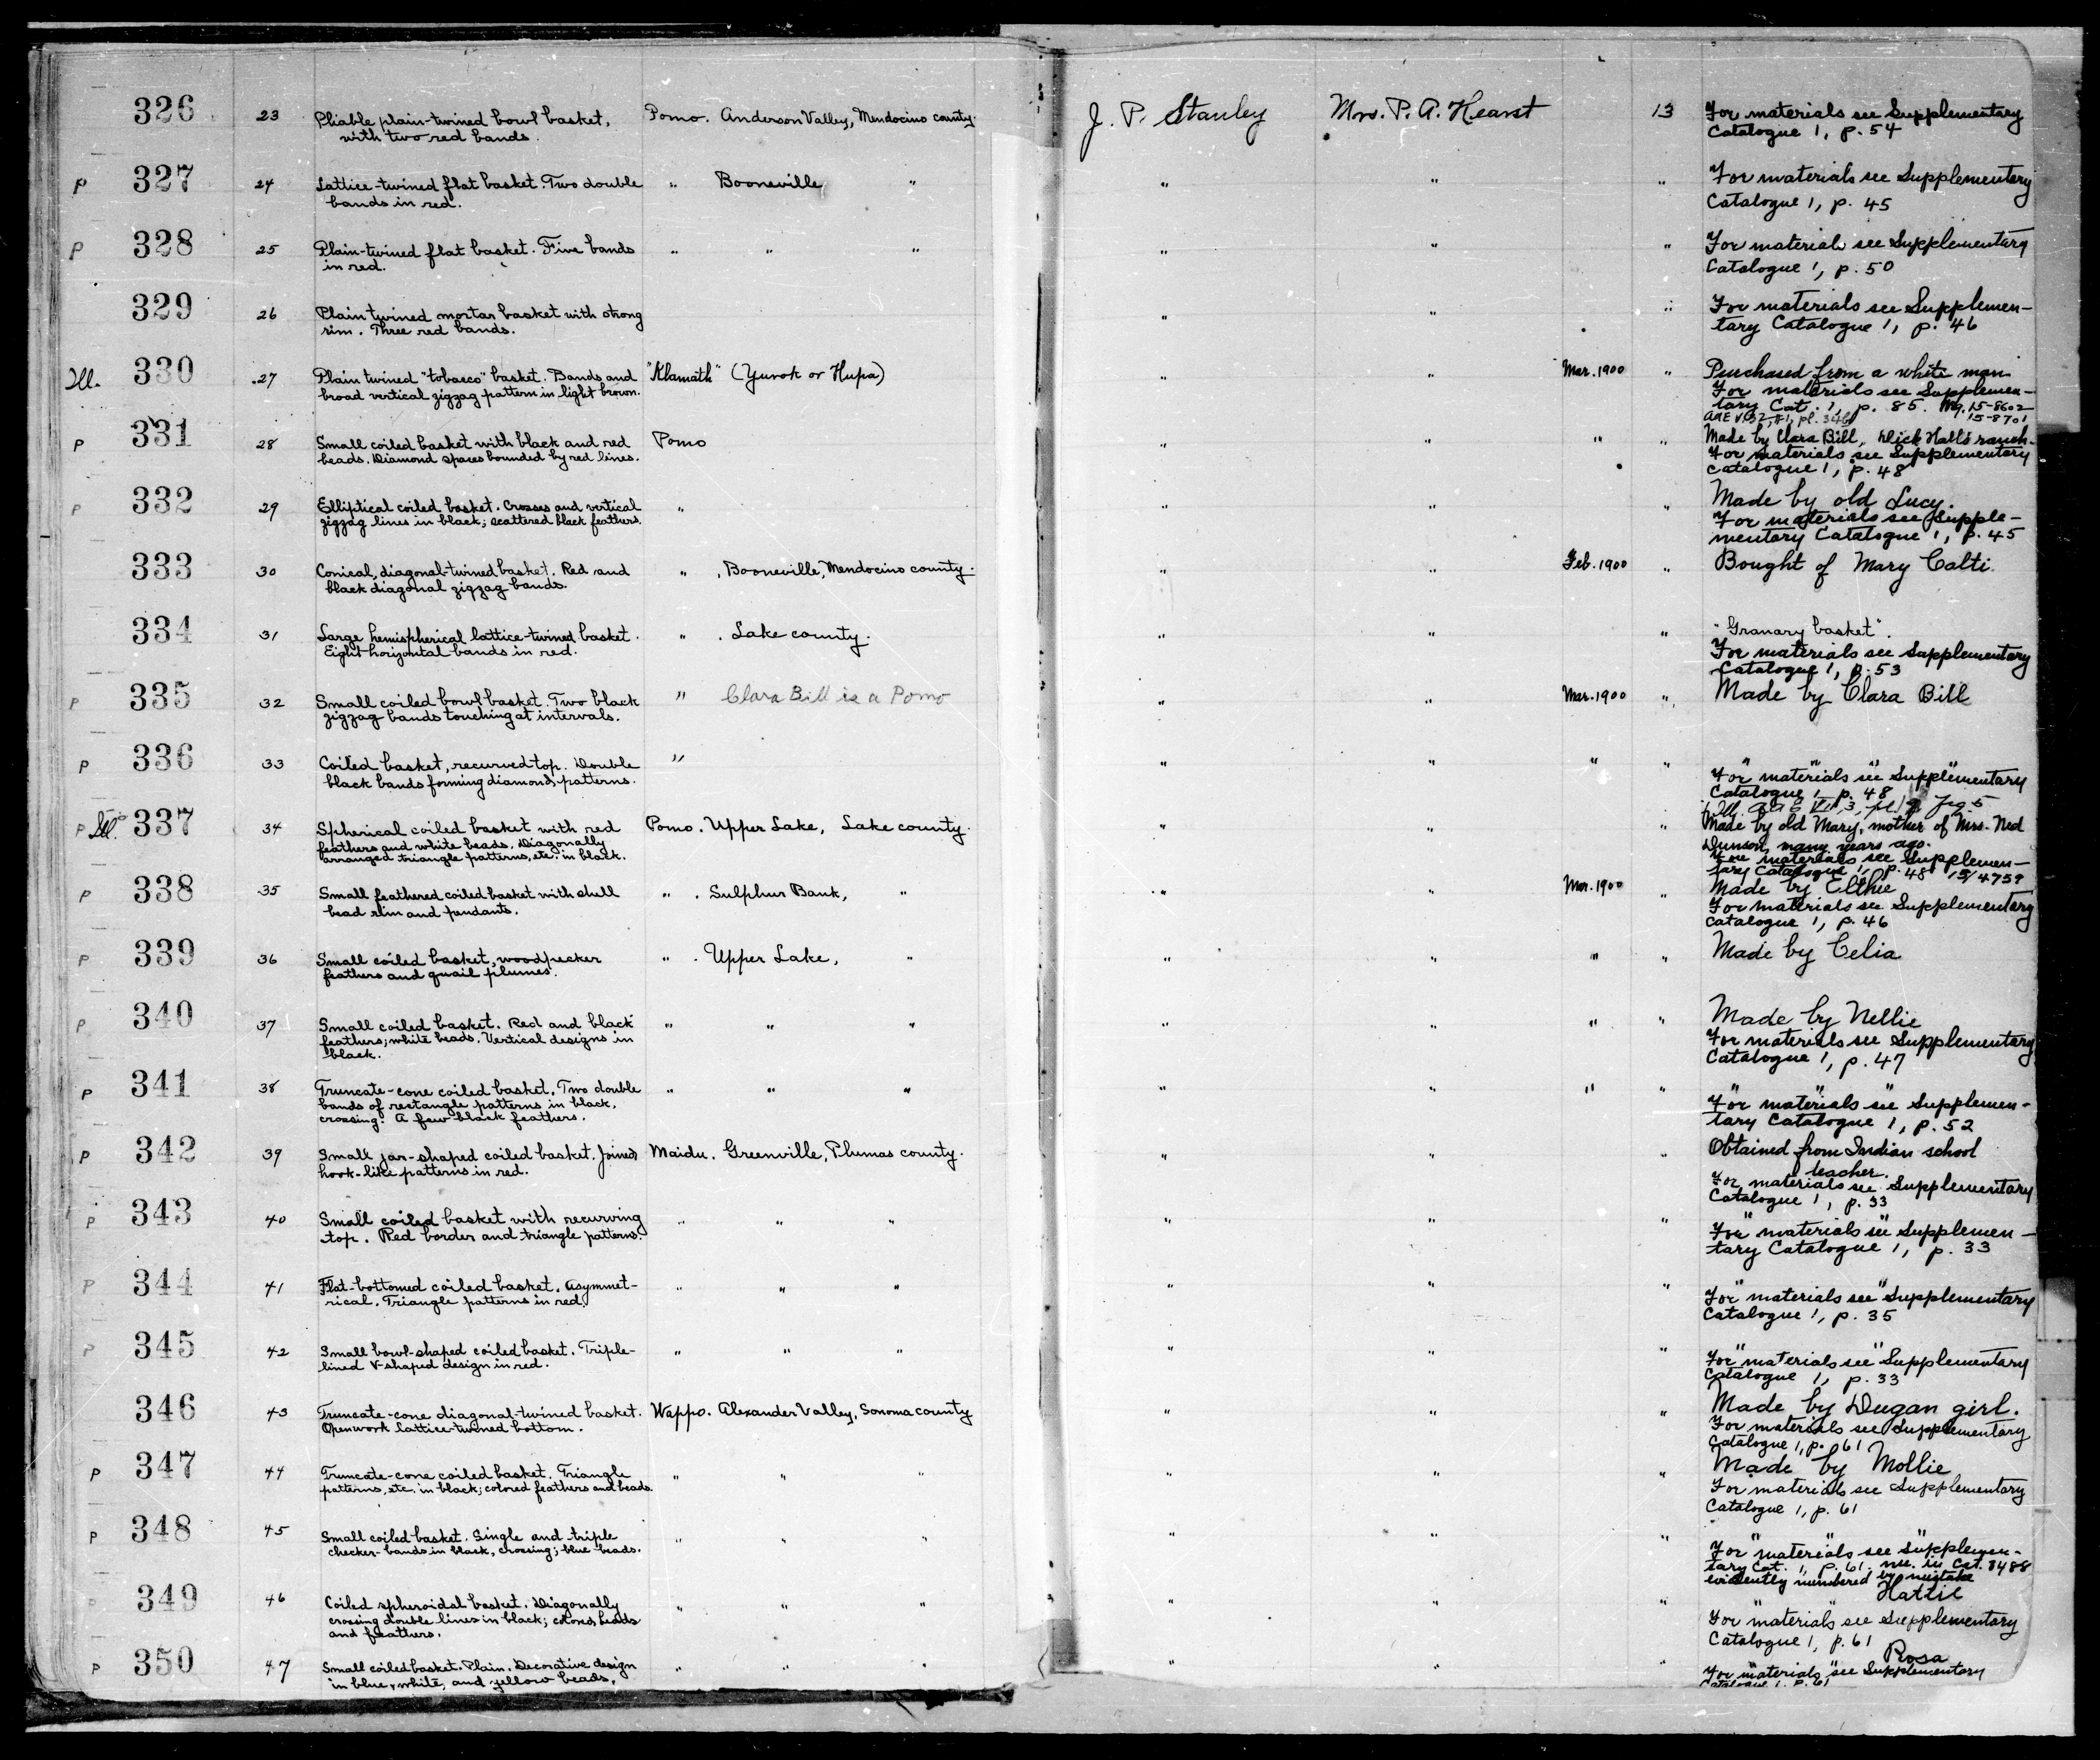 326 23 Pliable plain-twined bowl basket, Pomo. Anderson Valley, Mendocino county. J. P. Stanley Mrs. P. A. Hearst 13 For materials see Supplementary
with two red bands. Catalogue 1, p. 54
P 327 24 Lattice-twined flat basket. Two double " Booneville, " " " " For materials see Supplementary
bands in red. Catalogue 1, p. 45
P 328 25 Plain-twined flat basket. Five bands " " " " " " For materials see Supplementary
in red. Catalogue 1, p. 50
329 26 Plain twined mortar basket with strong " " " For materials see Supplemen-
rim. Three red bands. tary Catalogue 1, p. 46
Ill. 330 27 Plain twined "tobacco" basket. Bands and "Klamath" (Yurok or Hupa) " " Mar. 1900 " Purchased from a white man
broad vertical zigzag pattern in light brown. For materials see Supplemen-
tary Cat. 1, p. 85. 15-8602
15-8701
P 331 28 Small coiled basket with black and red Pomo " " " " Made by Clara Bill, Dick Hall's ranch.
beads. Diamond spaces bounded by red lines. For materials see Supplementary
Catalogue 1, p. 48
P 332 29 Elliptical coiled basket. Crosses and vertical " " " " Made by old Lucy.
zigzag lines in black; scattered black feathers. For materials see Supple-
mentary Catalogue 1, p. 45
333 30 Conical, diagonal-twined basket. Red and " , Booneville, Mendocino county. " " Feb. 1900 " Bought of Mary Calti
black diagonal zigzag bands.
334 31 Large hemispherical lattice-twined basket. " . Lake county. " " " "Granary basket".
Eight horizontal bands in red. For materials see Supplementary
Catalogue 1, p. 53
P 335 32 Small coiled bowl basket. Two black " Clara Bill is a Pomo " " Mar. 1900 " Made by Clara Bill
zigzag bands touching at intervals.
P 336 33 Coiled basket, recurved top. Double " " " " " " " "
black bands forming diamond patterns. For materials see Supplementary
Catalogue 1 p. 48
P Ill. 337 34 Spherical coiled basket with red Pomo. Upper Lake, Lake county. " " " Made by old Mary, mother of Mrs. Ned
feathers and white beads. Diagonally Dunson, many years ago.
arranged triangle patterns, etc. in black. For materials see Supplemen-
tary Catalogue 1, p. 48 15/4759
P 338 35 Small feathered coiled basket with shell " . Sulphur Bank, " " " Mar. 1900 " Made by Ellhie
bead rim and pendants. For materials see Supplementary
Catalogue 1, p. 46
P 339 36 Small coiled basket, woodpecker " . Upper Lake, " " " " " Made by Celia
feathers and quail plumes.
P 340 37 Small coiled basket. Red and black " " " " " " " Made by Nellie
feathers; white beads. Vertical designs in For materials see Supplementary
black. Catalogue 1, p. 47
P 341 38 Truncate-cone coiled basket. Two double " " " " " " " " " "
bands of rectangle patterns in black, For materials see Supplemen-
crossing. A few black feathers. tary Catalogue 1, p. 52
P 342 39 Small jar-shaped coiled basket. Joined Maidu. Greenville, Plumas county. " " " Obtained from Indian school
hook-like patterns in red. teacher.
For materials see Supplementary
Catalogue 1, p. 33
P 343 40 Small coiled basket with recurving " " " " " " " "
top. Red border and triangle patterns. For materials see Supplemen-
tary Catalogue 1, p. 33
P 344 41 Flat-bottomed coiled basket. Asymmet- " " " " " " " "
rical. Triangle patterns in red. For materials see Supplementary
Catalogue 1, p. 35
P 345 42 Small bowl-shaped coiled basket. Triple- " " " " " " " "
lined V-shaped design in red. For materials see Supplementary
Catalogue 1, p. 33
346 43 Truncate-cone diagonal-twined basket. Wappo. Alexander Valley, Sonoma county " " " Made by Dugan girl.
Openwork lattice-twined bottom. For materials see Supplementary
Catalogue 1, p. 61
P 347 44 Truncate-cone coiled basket. Triangle " " " " " " Made by Mollie
patterns, etc. in black; colored feathers and beads. For materials see Supplementary
Catalogue 1, p. 61
P 348 45 Small coiled basket. Single and triple " " " " " " " " "
checker-bands in black, crossing; blue beads. For materials see Supplemen-
tary Cat. 1, p. 61. no. in Cat. 8488
evidently numbered by mistake
P 349 46 Coiled spheroidal basket. Diagonally " " " " " " " " Hattie
crossing double lines in black; colored beads For materials see Supplementary
and feathers. Catalogue 1, p. 61
P 350 47 Small coiled basket. Plain. Decorative design " " " " " " " " Rosa
in blue, white, and yellow beads. For materials see Supplementary
Catalogue 1. p. 61